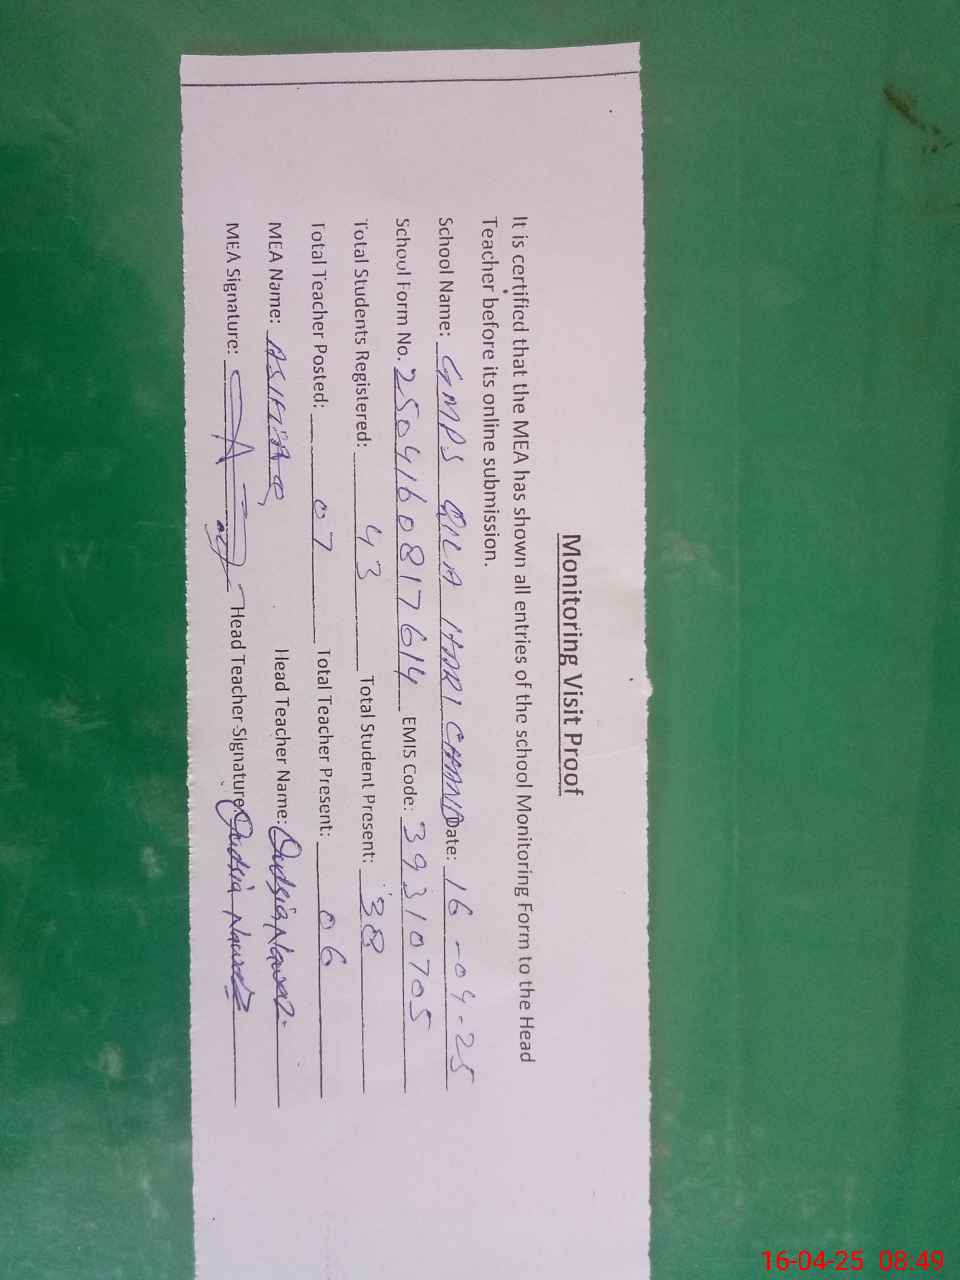 Monitoring Visit Proof
It is certified that the MEA has shown all entries of the school Monitoring Form to the Head
Teacher before its online submission.
School Name: GMPS QILA HARI CHAND Date: 16-04-25
School Form No. 2504160817614 EMIS Code: 39310705
Total Students Registered: 43 Total Student Present: 38
Total Teacher Posted: 07 Total Teacher Present: 06
MEA Name: Head Teacher Name: Qudsia Nawaz
MEA Signature: Head Teacher Signature: Qudsia Nawaz
16-04-25 08:49